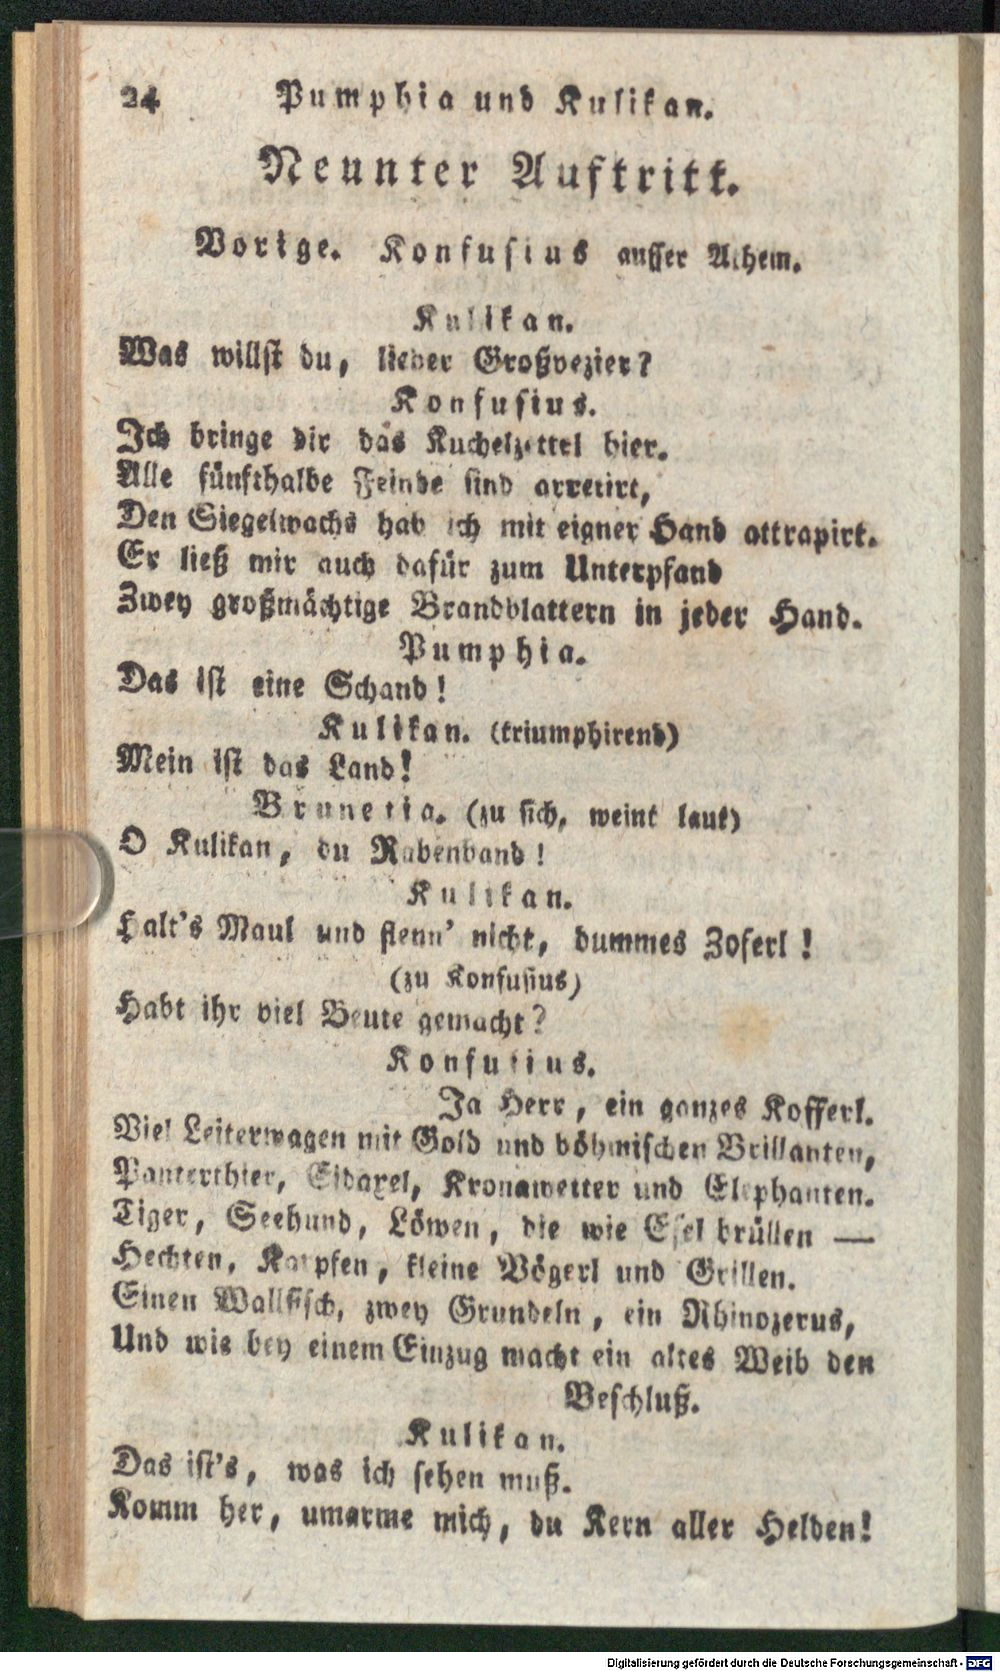 24 Pumphia und Kulikan.
Neunter Auftritt.
Vorige. Konfusius ausser Athem.
Kulikan.
Was willst du, lieber Großvezier?
Konfusius.
Ich bringe dir das Kuchelzettel hier.
Alle fünfthalbe Feinde sind arretirt,
Den Siegelwachs hab ich mit eigner Hand attrapirt.
Er ließ mir auch dafür zum Unterpfand
Zwey großmächtige Brandblattern in jeder Hand.
Pumphia.
Das ist eine Schand!
Kulikan. (triumphirend)
Mein ist das Land!
Brunetta. (zu sich, weint laut)
O Kulikan, du Rabenband!
Kulikan.
Halt's Maul und flenn' nicht, dummes Zoferl!
(zu Konfusius)
Habt ihr viel Beute gemacht?
Konfusius.
Ja Herr, ein ganzes Kofferl.
Viel Leiterwagen mit Gold und böhmischen Brillanten,
Panterthier, Eidaxel, Kronawetter und Elephanten.
Tiger, Seehund, Löwen, die wie Esel brüllen —
Hechten, Karpfen, kleine Vögerl und Grillen.
Einen Wallfisch, zwey Grundeln, ein Rhinozerus,
Und wie bey einem Einzug macht ein altes Weib den
Beschluß.
Kulikan.
Das ist's, was ich sehen muß.
Komm her, umarme mich, du Kern aller Helden!
Digitalisierung gefördert durch die Deutsche Forschungsgemeinschaft - DFG